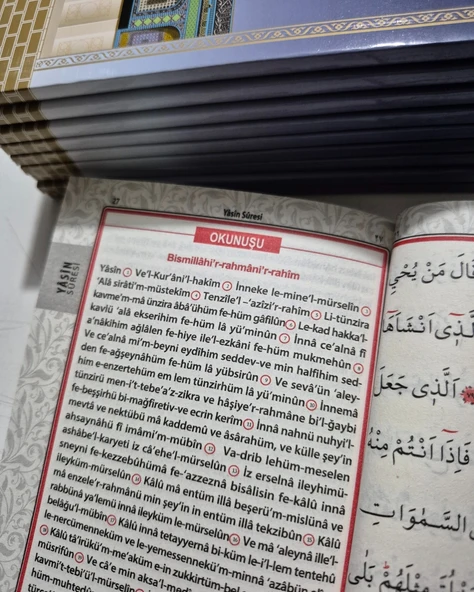 Yâsin Sûresi
OKUNUŞU
YÂSİN
SÛRESİ
Bismillâhi'r-rahmâni'r-rahîm
Yâsîn 1 Ve'l-Kur'âni'l-hakîm 2 İnneke le-mine'l-mürselîn 3
'Alâ sırâti'm-müstekîm 4 Tenzîle'l-'azîzi'r-rahîm 5 Li-tünzira
kavme'm-mâ ünzira âbâ'ühüm fe-hüm gâfilûn 6 Le-kad hakka'l-
kavlü 'alâ ekserihim fe-hüm lâ yü'minûn 7 İnnâ ce'alnâ fî
a'nâkihim ağlâlen fe-hiye ile'l-ezkâni fe-hüm mukmehûn 8
Ve ce'alnâ mi'm-beyni eydîhim sedde'v-ve min halfihim sed-
den fe-ağşeynâhüm fe-hüm lâ yübsirûn 9 Ve sevâ'ün 'aley-
him e-enzertehüm em lem tünzirhüm lâ yü'minûn 10 İnnemâ
tünziru meni't-tebe'a'z-zikra ve haşiye'r-rahmâne bi'l-ğaybi
fe-beşşirhü bi-mağfirativ-ve ecrin kerîm 11 İnnâ nahnü nuhyi'l-
mevtâ ve nektübü mâ kaddemû ve âsârahüm, ve külle şey'in
ahsaynâhü fî imâmi'm-mübîn 12 Va-drib lehüm-meselen
ashâbe'l-karyeti iz câ'ehe'l-mürselûn 13 İz erselnâ ileyhimü-
sneyni fe-kezzebûhümâ fe-'azzeznâ bisâlisin fe-kâlû innâ
ileyküm-mürselûn 14 Kâlû mâ entüm illâ beşerü'm-mislünâ ve
mâ enzele'r-rahmânü min şey'in in entüm illâ tekzibûn 15 Kâlû
rabbünâ ya'lemü innâ ileyküm le-mürselûn 16 Ve mâ 'aleynâ ille'l-
belâğu'l-mübîn 17 Kâlû innâ tetayyernâ bi-küm le-i'l-lem tentehû
le-nercümenneküm ve le-yemessenneküm-minnâ 'azâbün
18 Kâlû tâ'irüküm-me'aküm e-in zukkirtüm-bel
müsrifûn 19 Ve câ'e min aksa'l-medî
kavmi't-tebi'ü'l-mürselîn
قَالَ مَنْ يُحْيِ
الَّذِى اَنْشَاَهَا
الَّذِى جَعَلَ
فَاِذَا اَنْتُمْ مِنْهُ
السَّمٰوَاتِ
مِثْلَهُمْ بَلٰى